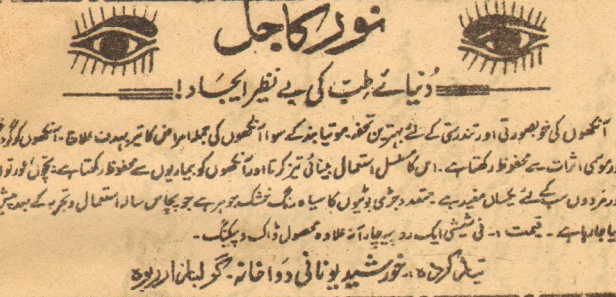 نور کاجل
دُنیائے طِبّ کی بے نظیر ایجاد!
آنکھوں کی خوبصورتی اور تندرستی کے لئے بہترین تحفہ۔ موتیا بند کے سوا آنکھوں کی جملہ امراض کا تیر بہدف علاج۔ آنکھوں کو گرد
و موسمی اثرات سے محفوظ رکھتا ہے۔ اس کا مسلسل استعمال بینائی تیز کرتا اور آنکھوں کو بیماریوں سے محفوظ رکھتا ہے۔ بچوں عورتوں
اور مردوں سب کے لئے یکساں مفید ہے۔ متعدد جڑی بوٹیوں کا سیاہ رنگ خشک جوہر ہے جو پچاس سالہ استعمال و تجربہ کے بعد پیش
کیا جا رہا ہے۔ قیمت :۔ فی شیشی ایک روپیہ چار آنہ علاوہ محصول ڈاک و پیکنگ۔
تیار کردہ :۔ خورشید یونانی دواخانہ۔ گولبازار ربوہ